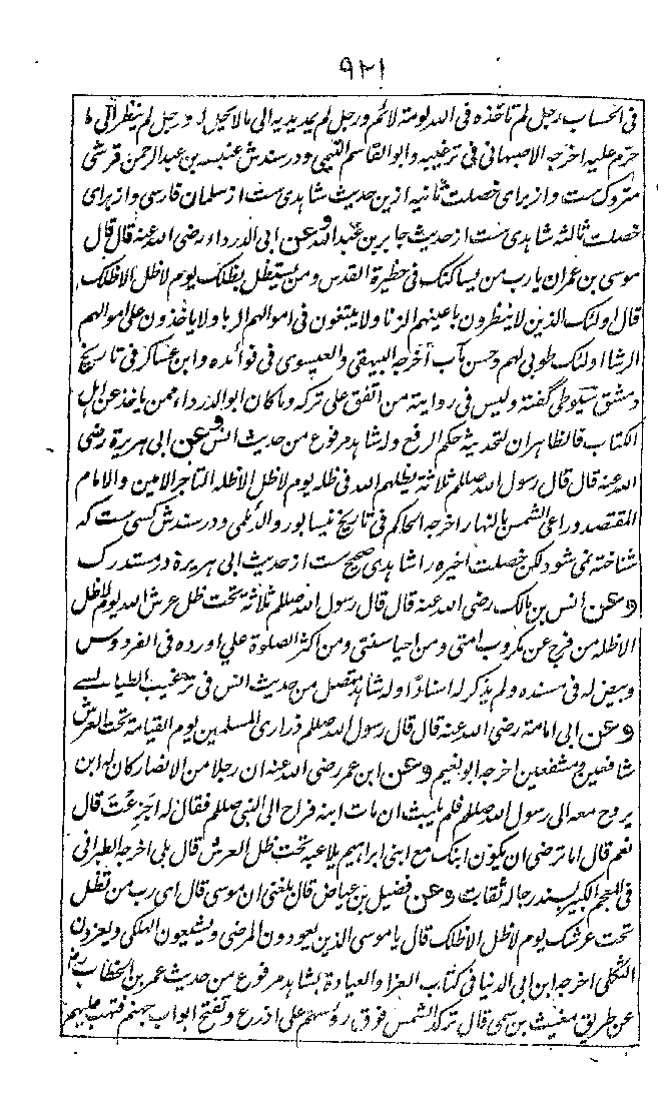 ۹۲۱
فی الحساب رجل لم تاخذه فی الله لومة لائم ورجل لم یمد یدیه الی مالا یحل له ورجل لم ینظر الی ما
حرم علیه اخرجه الاصبهانی فی ترغیبه وابو القاسم التیمی ودر سندش عنبسه بن عبد الرحمن قرشی
متروک ست واز برای خصلت ثانیه ازین حدیث شاهدی ست از سلمان فارسی واز برای
خصلت ثالثه شاهدی ست از حدیث جابر بن عبد الله وعن ابی الدرداء رضی الله عنه قال قال
موسی بن عمران یارب من یساکنک فی حظیرة القدس ومن یستظل بظلک یوم لاظل الاظلک
قال اولئک الذین لاینظرون باعینهم الزنا ولا یبتغون فی اموالهم الربا ولایاخذون علی اموالهم
الرشا اولئک طوبی لهم وحسن مآب اخرجه البیهقی والعیسوی فی فوائده وابن عساکر فی تاریخ
دمشق سیوطی گفته ولیس فی روایته من اتفق علی ترکه وما کان ابو الدرداء ممن یاخذ عن اهل
الکتاب فالظاهر ان لتحدیثه حکم الرفع وله شاهد مرفوع من حدیث انس وعن ابی هریرة رضی
الله عنه قال قال رسول الله صللم ثلاثة یظلهم الله فی ظله یوم لاظل الاظله التاجر الامین والامام
المقتصد وراعی الشمس بالنهار اخرجه الحاکم فی تاریخ نیسابور والدیلمی ودر سندش کسی ست که
شناخته نمی شود لکن خصلت اخیره را شاهدی صحیح ست از حدیث ابی هریرة در مستدرک
وعن انس بن مالک رضی الله عنه قال قال رسول الله صللم ثلاثة تحت ظل عرش الله یوم لاظل
الاظله من فرج عن مکروب امتی ومن احیا سنتی ومن اکثر الصلوة علی اورده فی الفردوس
وبیض له فی مسنده ولم یذکر له اسنادا وله شاهد متصل من حدیث انس فی ترغیب الطیالسے
وعن ابی امامة رضی الله عنه قال قال رسول الله صللم ذراری المسلمین یوم القیامة تحت العرش
شافعین ومشفعین اخرجه ابو نعیم وعن ابن عمر رضی الله عنه ان رجلا من الانصار کان له ابن
یروح معه الی رسول الله صللم فلم یلبث ان مات ابنه فراح الی النبی صللم فقال له اجزعت قال
نعم قال اما ترضی ان یکون ابنک مع ابنی ابراهیم یلاعبه تحت ظل العرش قال بلی اخرجه الطبرانی
فی المعجم الکبیر بسند رجاله ثقات وعن فضیل بن عیاض قال بلغنی ان موسی قال ای رب من تظل
تحت عرشک یوم لاظل الاظلک قال یا موسی الذین یعودون المرضی ویشیعون الهلکی ویعزون
الثکلی اخرجه ابن ابی الدنیا فی کتاب العزا والعیادة بشاهد مرفوع من حدیث عمر بن الخطاب رض
عن طریق مغیث بن سمی قال ترکد الشمس فوق رؤسهم علی اذرع وتفتح ابواب جهنم فتهب علیهم